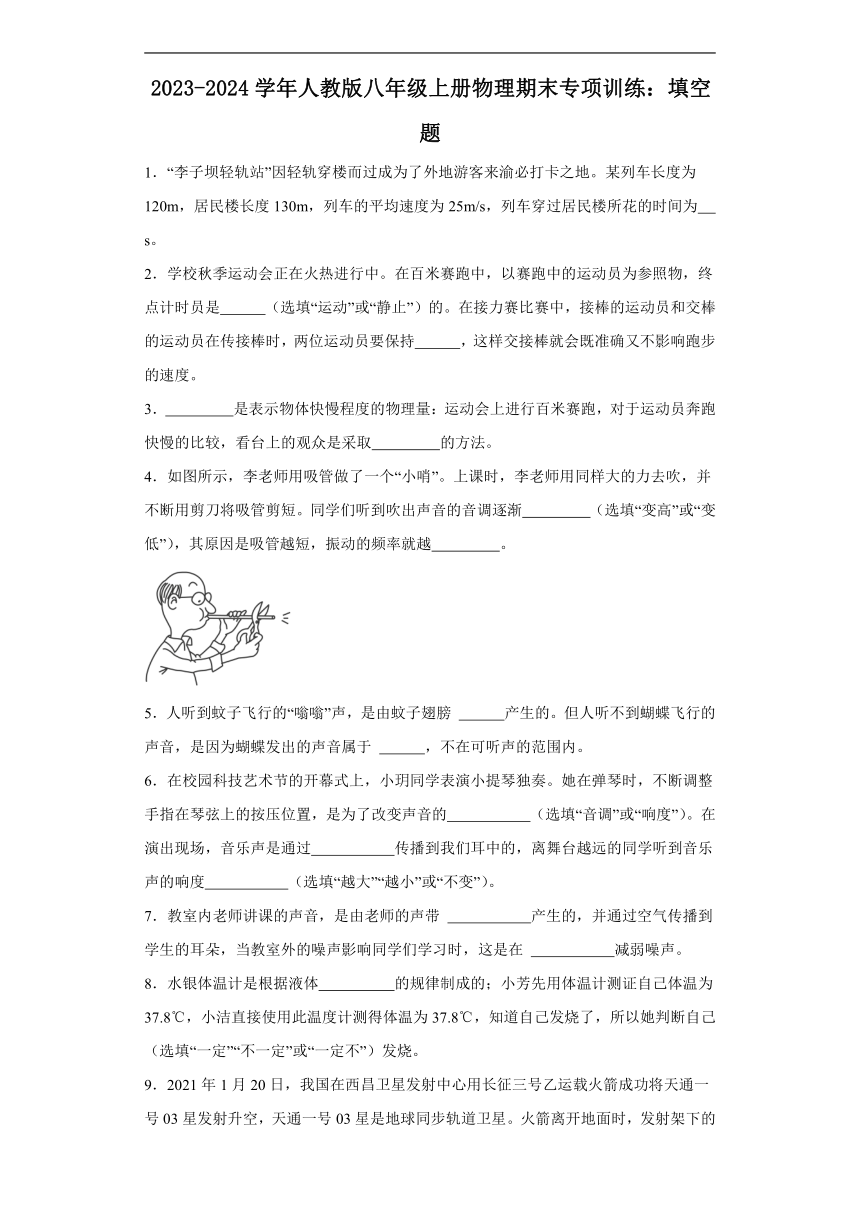 2023-2024学年人教版八年级上册物理期末专项训练：填空
题
1．“李子坝轻轨站”因轻轨穿楼而过成为了外地游客来渝必打卡之地。某列车长度为
120m，居民楼长度130m，列车的平均速度为25m/s，列车穿过居民楼所花的时间为__
s。
2．学校秋季运动会正在火热进行中。在百米赛跑中，以赛跑中的运动员为参照物，终
点计时员是______（选填“运动”或“静止”）的。在接力赛比赛中，接棒的运动员和交棒
的运动员在传接棒时，两位运动员要保持______，这样交接棒就会既准确又不影响跑步
的速度。
3．_________是表示物体快慢程度的物理量：运动会上进行百米赛跑，对于运动员奔跑
快慢的比较，看台上的观众是采取_________的方法。
4．如图所示，李老师用吸管做了一个“小哨”。上课时，李老师用同样大的力去吹，并
不断用剪刀将吸管剪短。同学们听到吹出声音的音调逐渐_________（选填“变高”或“变
低”），其原因是吸管越短，振动的频率就越_________。
5．人听到蚊子飞行的“嗡嗡”声，是由蚊子翅膀 ______产生的。但人听不到蝴蝶飞行的
声音，是因为蝴蝶发出的声音属于 ______，不在可听声的范围内。
6．在校园科技艺术节的开幕式上，小玥同学表演小提琴独奏。她在弹琴时，不断调整
手指在琴弦上的按压位置，是为了改变声音的___________（选填“音调”或“响度”）。在
演出现场，音乐声是通过___________传播到我们耳中的，离舞台越远的同学听到音乐
声的响度___________（选填“越大”“越小”或“不变”）。
7．教室内老师讲课的声音，是由老师的声带 ___________产生的，并通过空气传播到
学生的耳朵，当教室外的噪声影响同学们学习时，这是在 ___________减弱噪声。
8．水银体温计是根据液体__________的规律制成的；小芳先用体温计测证自己体温为
37.8℃，小洁直接使用此温度计测得体温为37.8℃，知道自己发烧了，所以她判断自己
（选填“一定”“不一定”或“一定不”）发烧。
9．2021年1月20日，我国在西昌卫星发射中心用长征三号乙运载火箭成功将天通一
号03星发射升空，天通一号03星是地球同步轨道卫星。火箭离开地面时，发射架下的